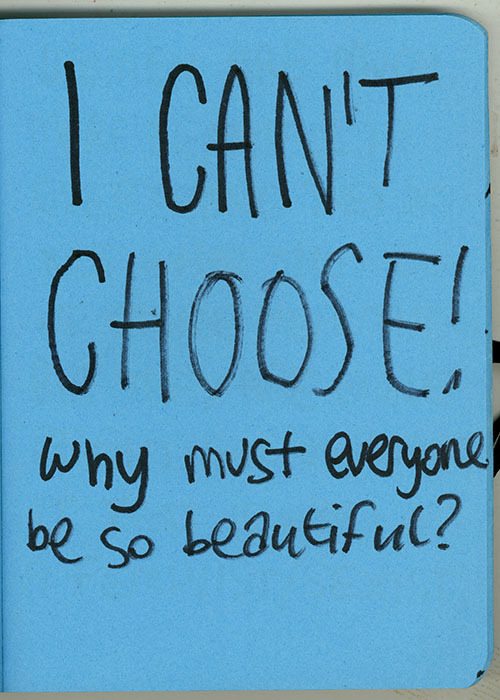 I CAN'T
CHOOSE!
why must everyone
be so beautiful?